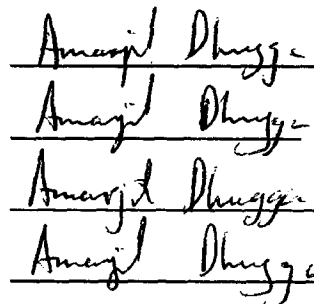 Amarjit Dhugga
Amarjit Dhugga
Amarjit Dhugga
Amarjit Dhugga